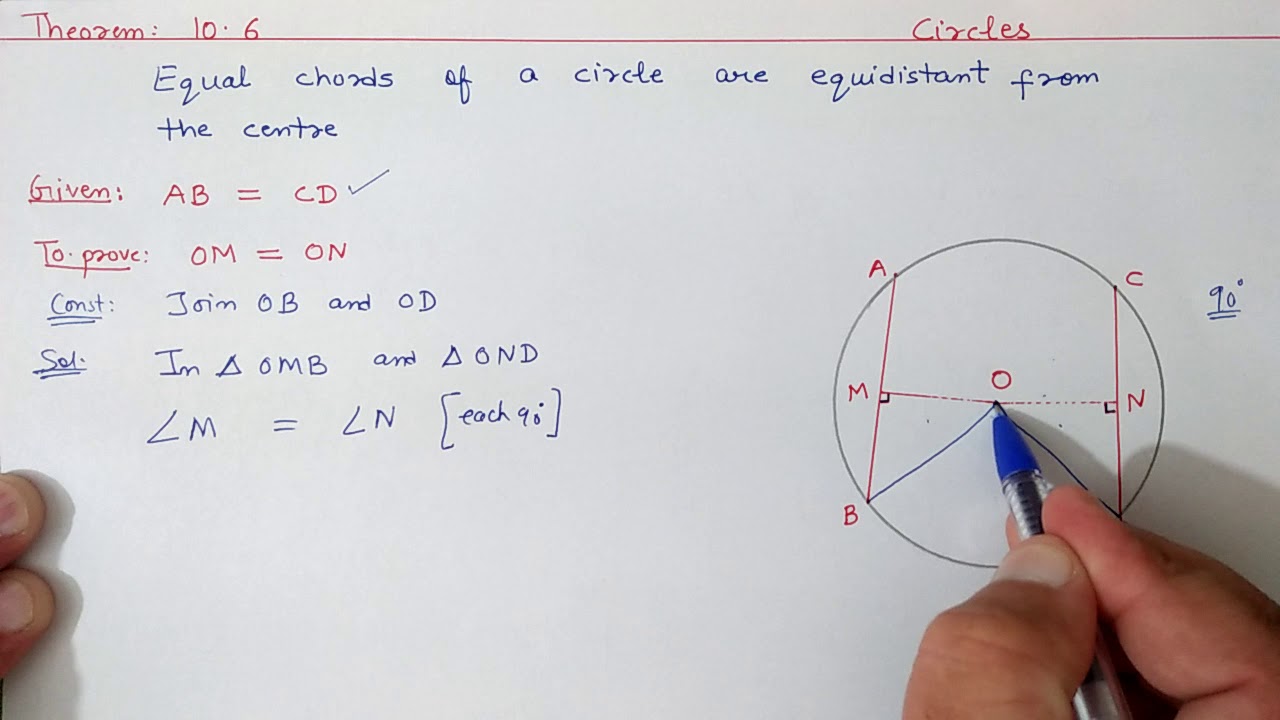 Theorem: 10.6
Circles
Equal chords of a circle are equidistant from
the centre
Given: AB = CD ✓
To prove: OM = ON
Const: Join OB and OD
Sol. In Δ OMB and Δ OND
∠M = ∠N [each 90°]
A
C
90°
M
O
N
B